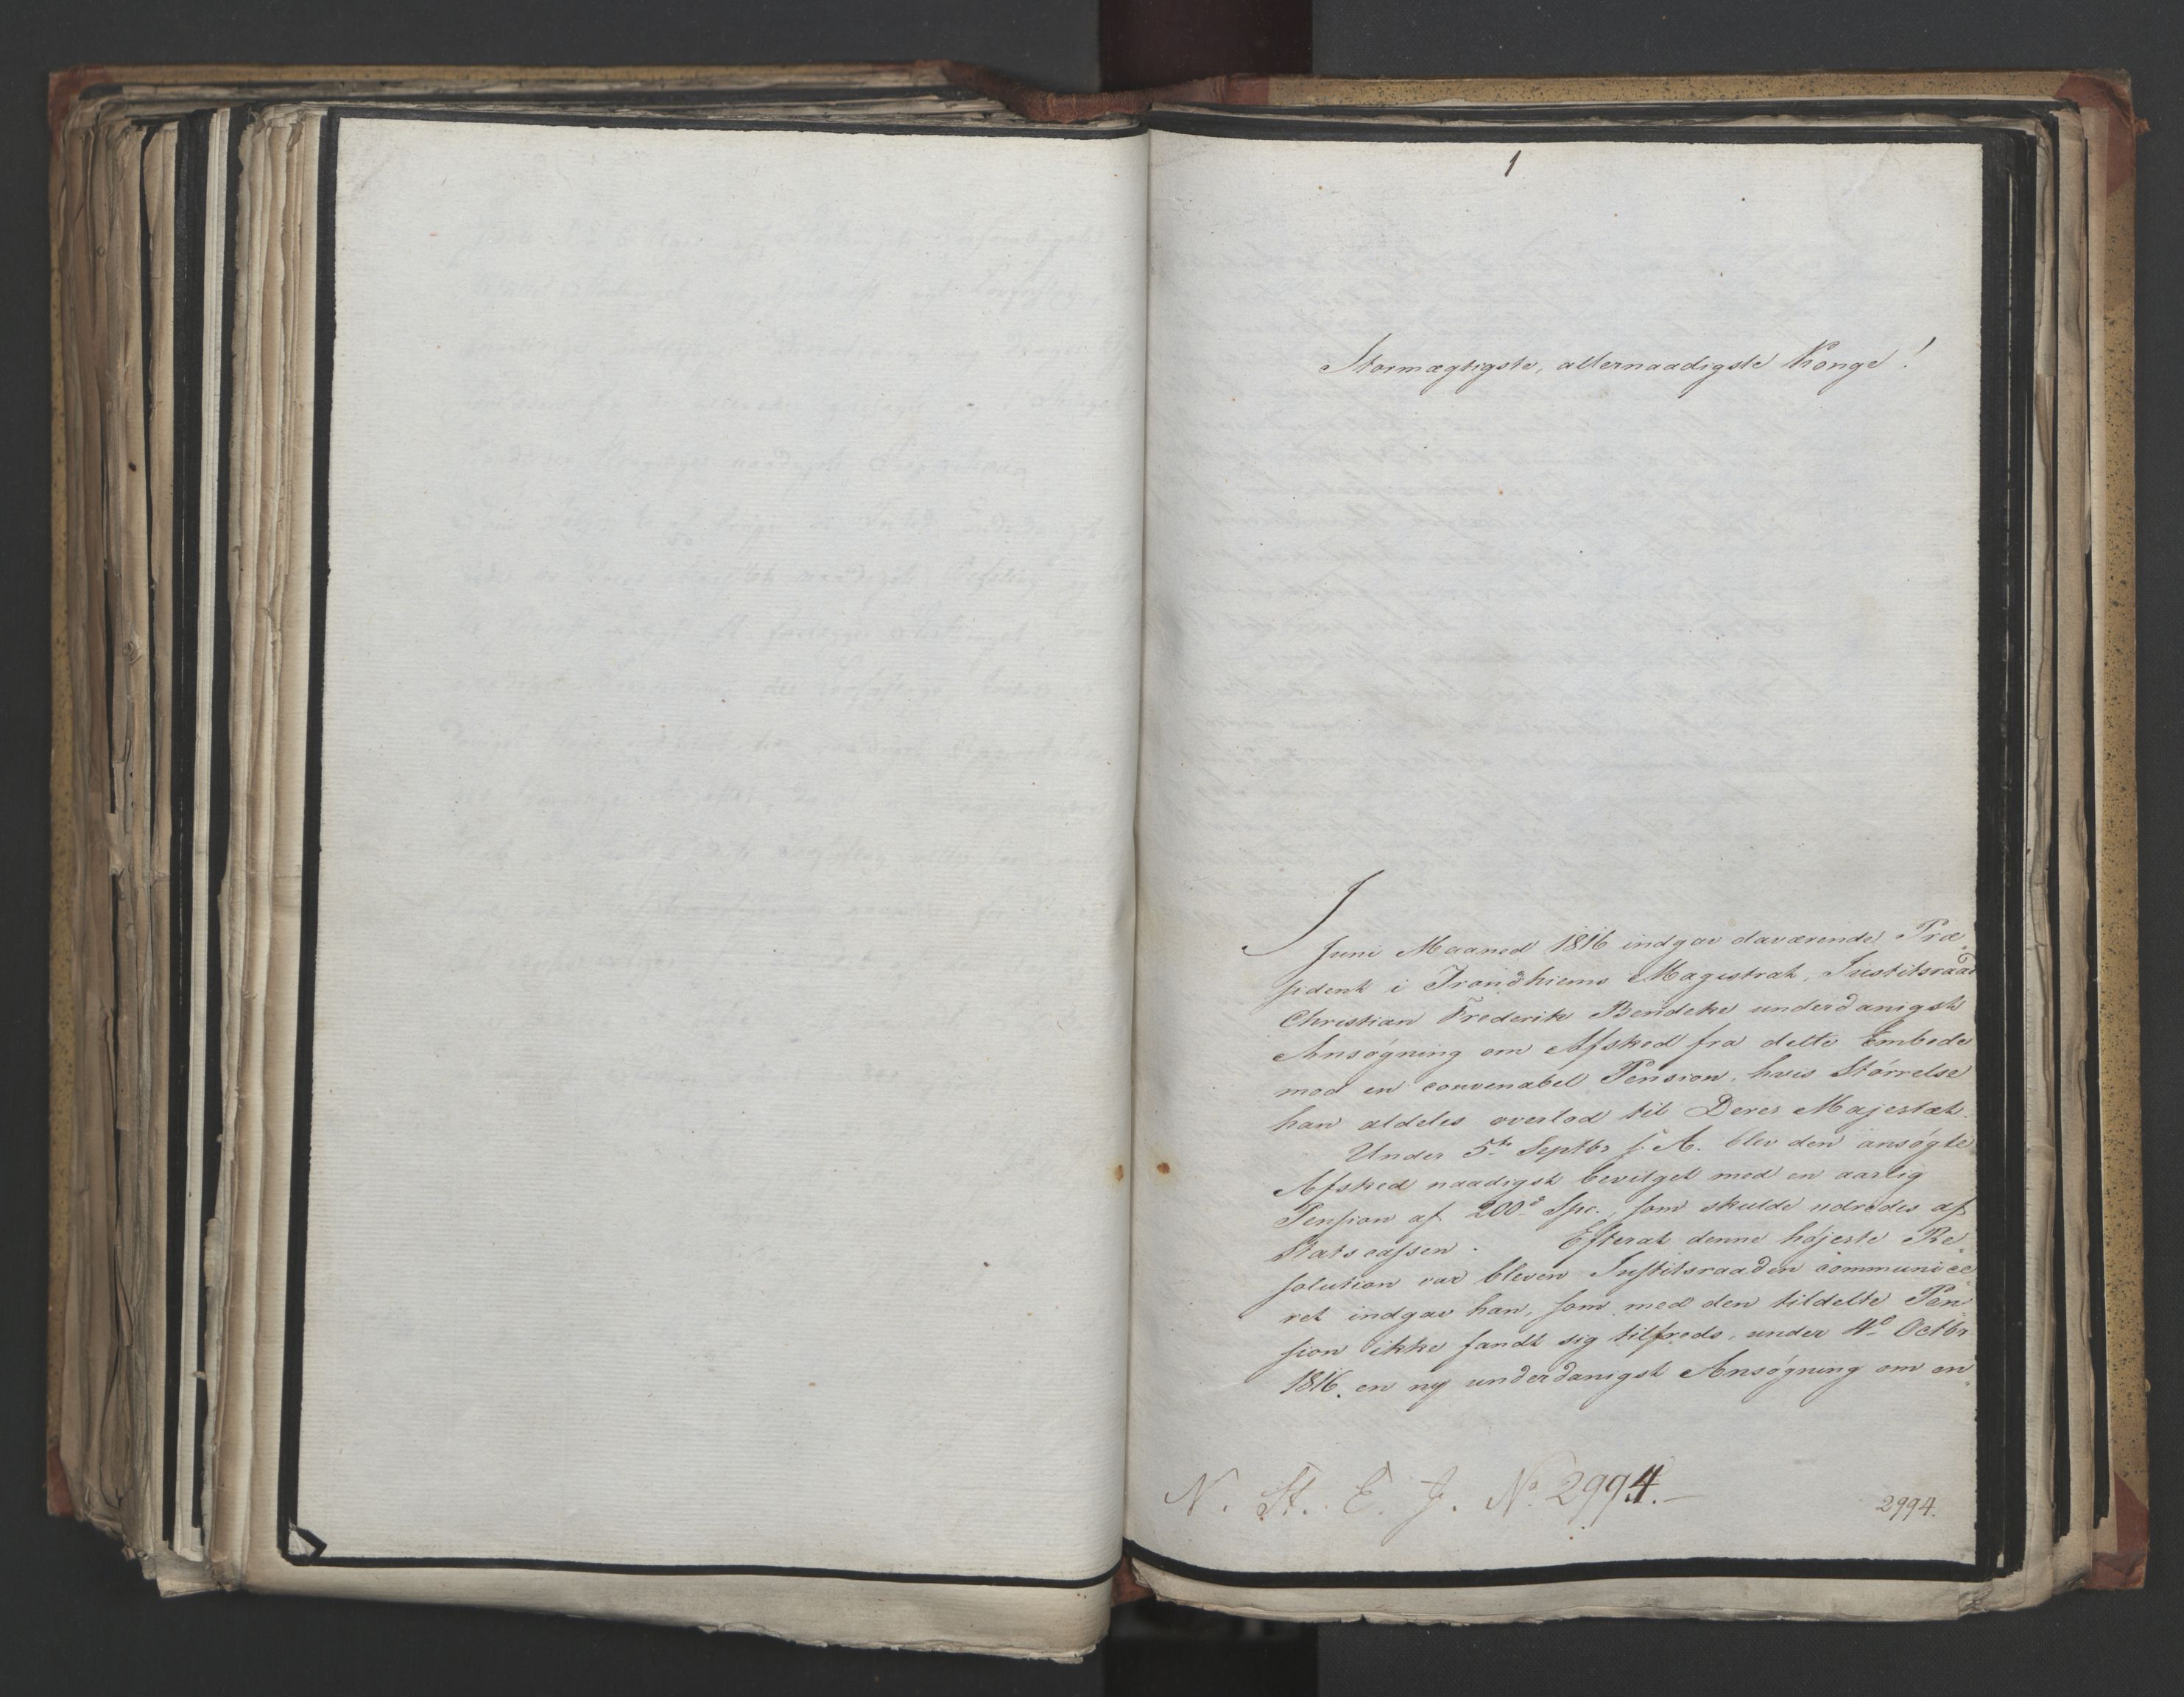 1
Stormægtigste, allernaadigste Konge!
I
Juni Maaned 1816 indgav daværende Præ„
sident i Trondhiems Magistrat, Justitsraad
Christian Frederik Bendeke underdanigst
Ansøgning om Afsked fra dette Embede
mod en convenabel Pension, hvis Størrelse
han aldeles overlod til Deres Majestæt.
Under 5te Septbr s. A. blev den ansøgte
Afsked naadigst bevilget med en aarlig
Pension af 200d Spc., som skulde udredes af
Statscassen. Efterat denne højeste Re„
solution var bleven Justitsraaden communice„
ret indgav han, som med den tildelte Pen„
sion ikke fandt sig tilfreds, under 4d Octbr
1816. en ny underdanigst Ansøgning om en„
N. St. E. J. No 2994.—
2994.